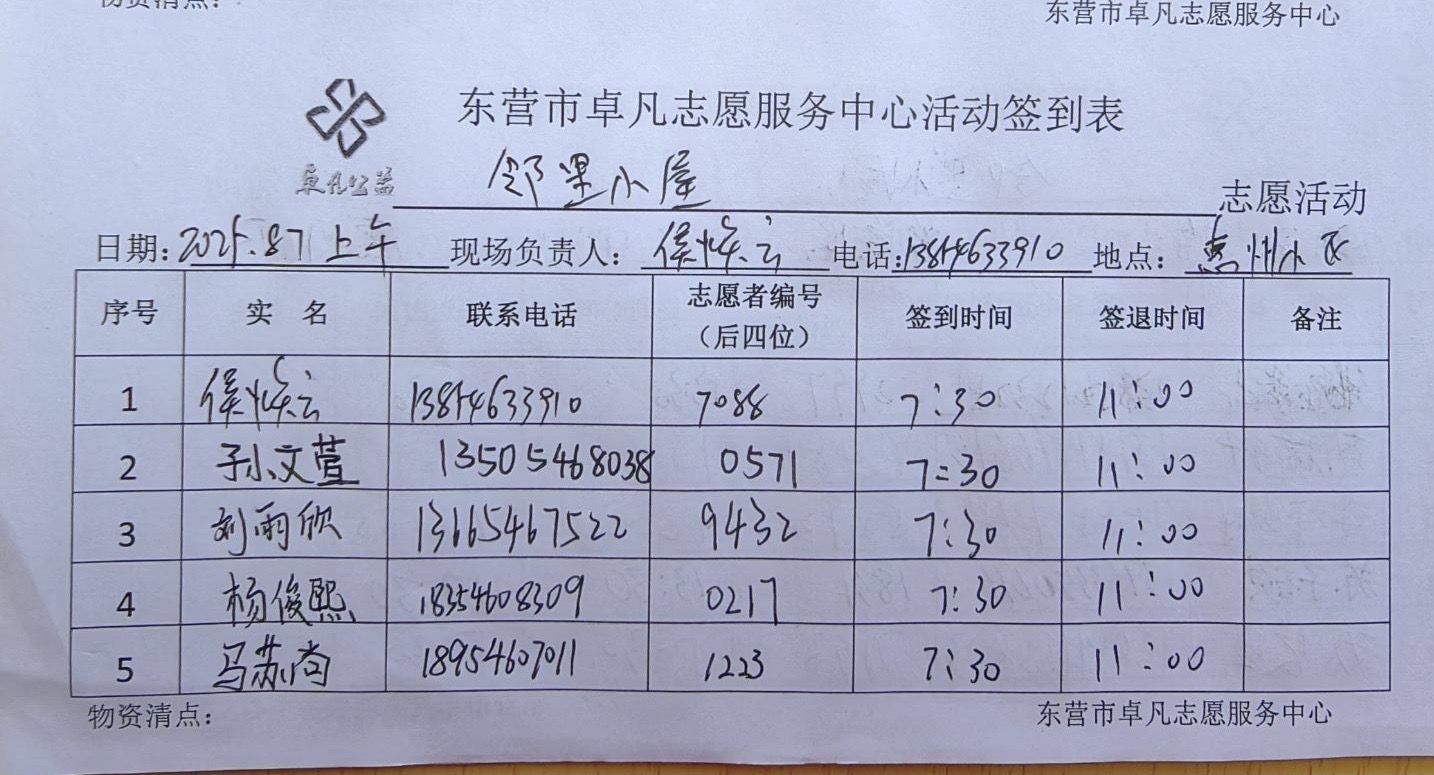 物资清点：
东营市卓凡志愿服务中心
东营市卓凡志愿服务中心活动签到表
卓凡公益
邻里小屋 志愿活动
日期：2025.8.7 上午 现场负责人：侯云 电话：13854633910 地点：惠州小区
序号 实 名 联系电话 志愿者编号（后四位） 签到时间 签退时间 备注
1 侯云 13854633910 7088 7:30 11:00
2 孙文萱 13505468038 0571 7:30 11:00
3 刘雨欣 13665467522 9432 7:30 11:00
4 杨俊熙 18354608309 0217 7:30 11:00
5 马苏尚 18954607011 1223 7:30 11:00
物资清点：
东营市卓凡志愿服务中心